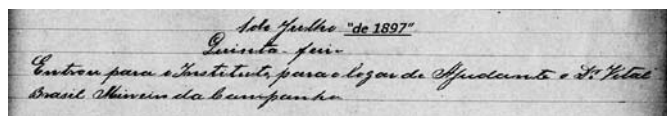 1 de Julho "de 1897"
Quinta-feira
Entrou para o Instituto, para o logar de Ajudante o Dr Vital
Brasil Mineiro da Campanha